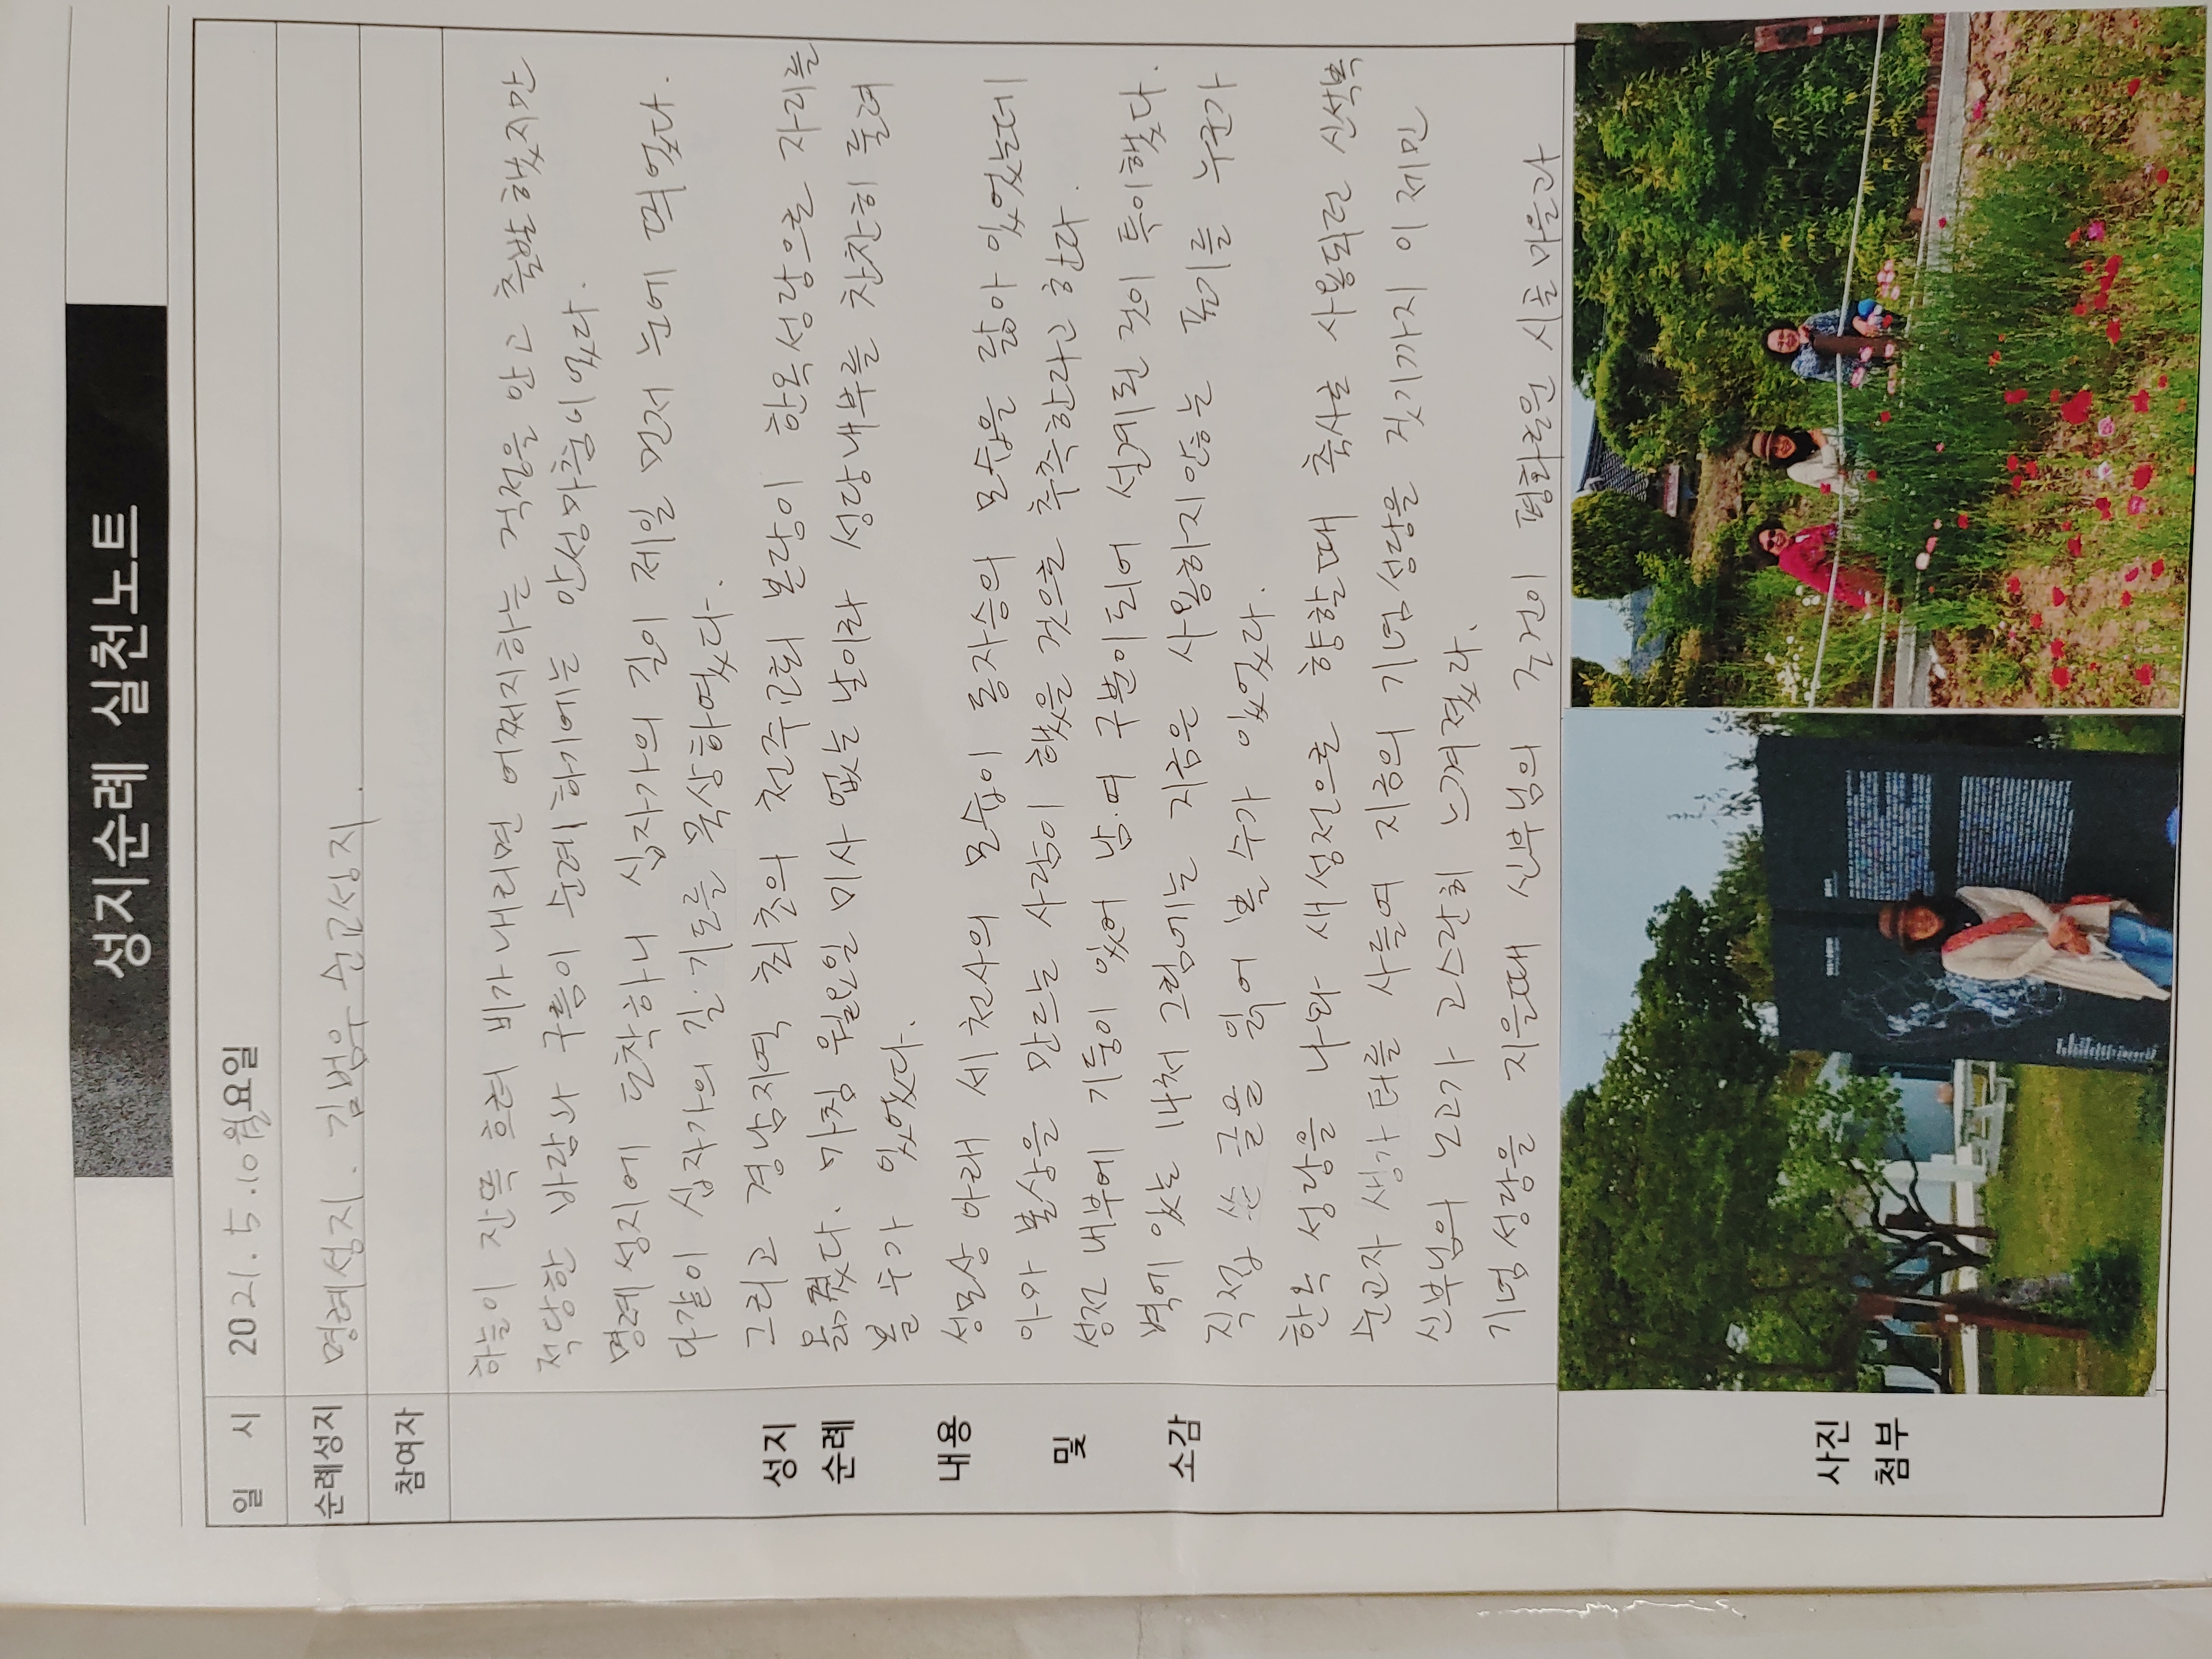 성지순례 실천노트
일 시 2021. 5. 10 월요일
순례성지 명례성지. 김범우 순교성지.
참여자
성지
순례
내용
및
소감
하늘이 잔뜩 흐려 비가 내리면 어쩌지하는 걱정을 안고 출발했지만
적당한 바람과 구름이 순례하기에는 안성마춤이었다.
명례성지에 도착하니 십자가의 길이 제일 먼저 눈에 띄었다.
다같이 십자가의 길·기도를 묵상하였다.
그리고 경남지역 최초의 천주교회 본당이 한옥성당으로 자리를
옮겼다. 마침 월요일 미사 없는 날이라 성당내부를 찬찬히 둘러
볼 수가 있었다.
성모상 아래 세 천사의 모습이 동자승의 모습을 닮아 있었는데
아마 불상을 만드는 사람이 했을 것으로 추측한다라고 한다.
성전 내부에 기둥이 있어 남.여 구분이되어 설계된 것이 특이했다.
벽에 있는 내처 그림에는 지금은 사용하지않는 표기를 누군가
직접 쓴 글을 읽어 볼 수가 있었다.
한옥 성당을 나와 새성전으로 향할때 축사로 사용되던 신석복
순교자 생가터를 사들여 지금의 기념성당을 짓기까지 이제민
신부님의 노고가 고스란히 느껴졌다.
기념성당을 지을때 신부님의 조건이 평화로운 시골마을과
사진
첨부